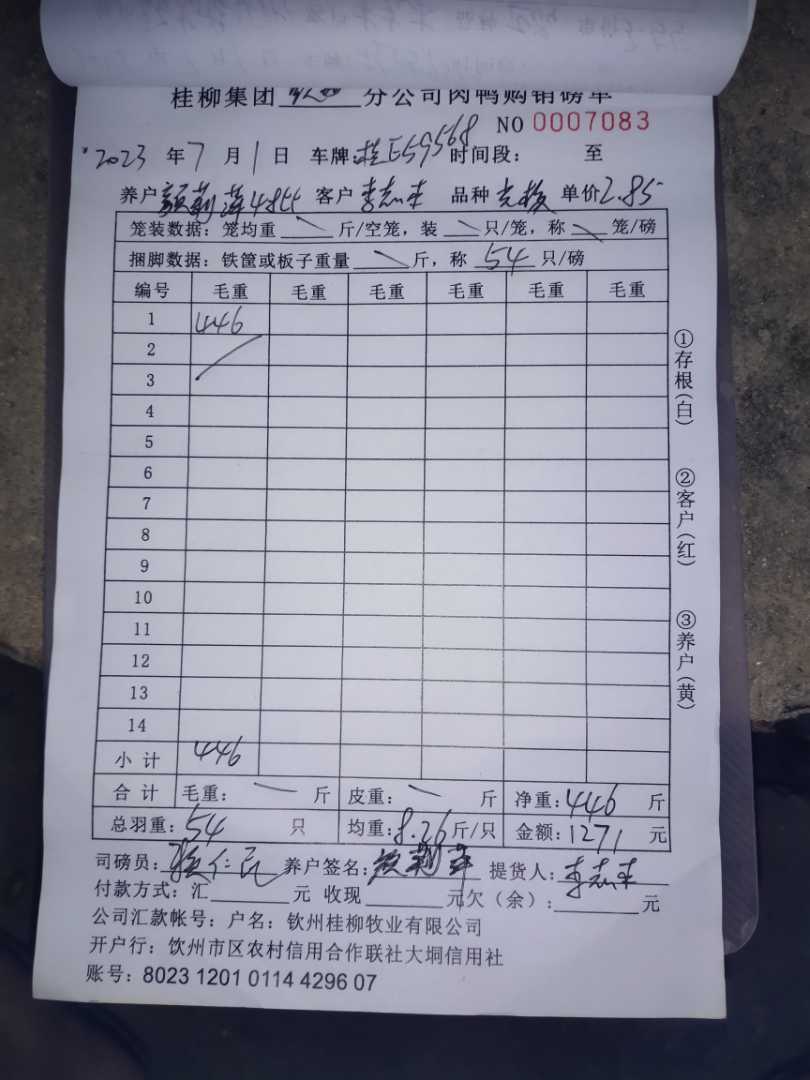 桂柳集团 分公司肉鸭购销磅单
NO 0007083
2023 年 7 月 1 日 车牌:桂E59568 时间段: 至
养户 客户 李志来 品种 单价 2.85
笼装数据: 笼均重 斤/空笼, 装 只/笼, 称 笼/磅
捆脚数据: 铁筐或板子重量 斤, 称 54 只/磅
编号 毛重 毛重 毛重 毛重 毛重 毛重
1 446
2
3
4
5
6
7
8
9
10
11
12
13
14
小 计 446
合 计 毛重: 斤 皮重: 斤 净重: 446 斤
总羽重: 54 只 均重: 8.26 斤/只 金额: 1271 元
司磅员: 养户签名: 提货人: 李志来
付款方式: 汇 元 收现 元欠(余): 元
公司汇款帐号: 户名: 钦州桂柳牧业有限公司
开户行: 钦州市区农村信用合作联社大垌信用社
账号: 8023 1201 0114 4296 07
①存根(白)
②客户(红)
③养户(黄)